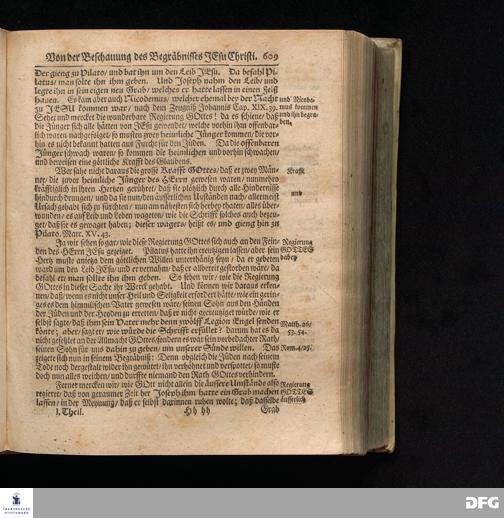 Von der Beschauung des Begräbnisses JEsu Christi. 609
Der gieng zu Pilato/ und bat ihn um den Leib JEsu. Da befahl Pi-
latus/ man solte ihn ihm geben. Und Joseph nahm den Leib/ und
legte ihn in sein eigen neu Grab/ welches er hatte lassen in einen Felß
hauen. Es kam aber auch Nicodemus/ welcher ehemal bey der Nacht
zu JESU kommen war/ nach dem Zeugniß Johannis Cap. XIX. 39.
Sehet und mercket die wunderbare Regierung GOttes! da es schiene/ daß
die Jünger sich alle hätten von JEsu gewendet/ welche vorhin ihm offenbar-
lich waren nachgefolget/ so musten zwey heimliche Jünger kommen/ die vor-
hin es nicht bekannt hatten aus Furcht für den Jüden. Da die offenbaren
Jünger schwach waren/ so kommen die heimlichen und vorhin schwachen/
und beweisen eine göttliche Krafft des Glaubens.
Wer sahe nicht daraus die grosse Krafft GOttes/ daß er zwey Män-
ner/ die zuvor heimliche Jünger des HErrn gewesen waren/ nunmehro
kräfftiglich in ihren Hertzen gerühret/ daß sie plötzlich durch alle Hindernisse
hindurch drungen/ und da sie nun/ den äusserlichen Umständen nach/ allermeist
Ursach gehabt sich zu fürchten/ nun am nähesten sich herbey thaten/ alles über-
wunden/ es auf Leib und Leben wageten/ wie die Schrifft solches auch bezeu-
get/ daß sie es gewaget haben; dieser wagets/ heißt es/ und gieng hin zu
Pilato. Marc. XV. 43.
Ja wir sehen so gar/ wie diese Regierung GOttes sich auch an den Fein-
den des HErrn JEsu gezeiget. Pilatus hatte ihn creutzigen lassen/ aber sein
Hertz muste anietzo dem göttlichen Willen unterthänig seyn/ da er gebeten
ward um den Leib JEsu/ und er vernahm/ daß er allbereit gestorben wäre/ da
befahl er/ man solte ihn ihm geben. So sehen wir/ wie die Regierung
GOttes in dieser Sache ihr Werck gehabt. Und können wir daraus erken-
nen/ daß/ wenn es nicht unser Heil und Seligkeit erfordert hätte/ wie ein gerin-
ges es dem himmlischen Vater gewesen wäre/ seinen Sohn aus den Händen
der Jüden und der Heyden zu erretten/ daß er nicht gecreutziget würde/ wie er
selbst sagte/ daß ihm sein Vater mehr denn zwölff Legion Engel senden
könte; aber/ sagt er/ wie würde die Schrifft erfüllet? darum hat es da
nicht gefehlet an der Allmacht GOttes/ sondern es war sein vorbedachter Rath/
seinen Sohn für uns dahin zu geben/ um unserer Sünde willen. Das
zeigete sich nun in seinem Begräbniß: Denn obgleich die Jüden nach seinem
Tode noch dergestalt wider ihn gewütet/ ihn verhöhnet und verspottet/ so muste
doch dem nun alles weichen/ und durffte niemand den Rath GOttes verhindern.
Ferner mercken wir/ wie GOtt nicht allein die äussere Umstände also
regieret/ daß von geraumer Zeit her Joseph ihm hatte ein Grab machen
lassen/ in der Meynung/ daß er selbst darinnen ruhen wolte; daß dasselbe
I. Theil. Hh hh Grab
und Nicode-
mus kommen
und ihn begra-
ben.
Krafft
und
Regierung
GOTTES
dabey
Matth. 26/
53. 54.
Rom. 4/25.
Regierung
GOTTES
äusserlich
FRANCKESCHE
STIFTUNGEN
DFG